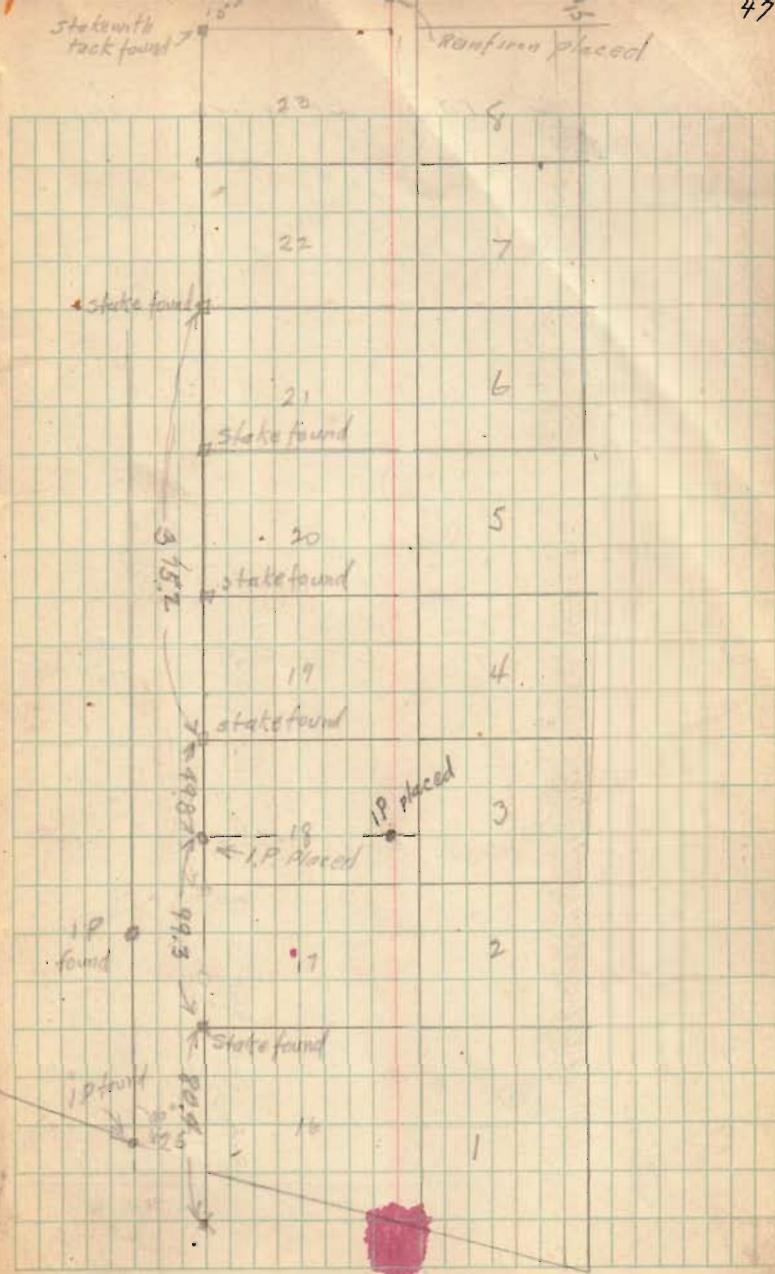 47
Stake with
tack found
placed
23
8
22
7
stake found
21
6
Stake found
20
5
stake found
19
4
stake found
IP placed
3
18
I.P. Placed
49.8
99.3
IP
found
17
2
Stake found
IP found
16
1